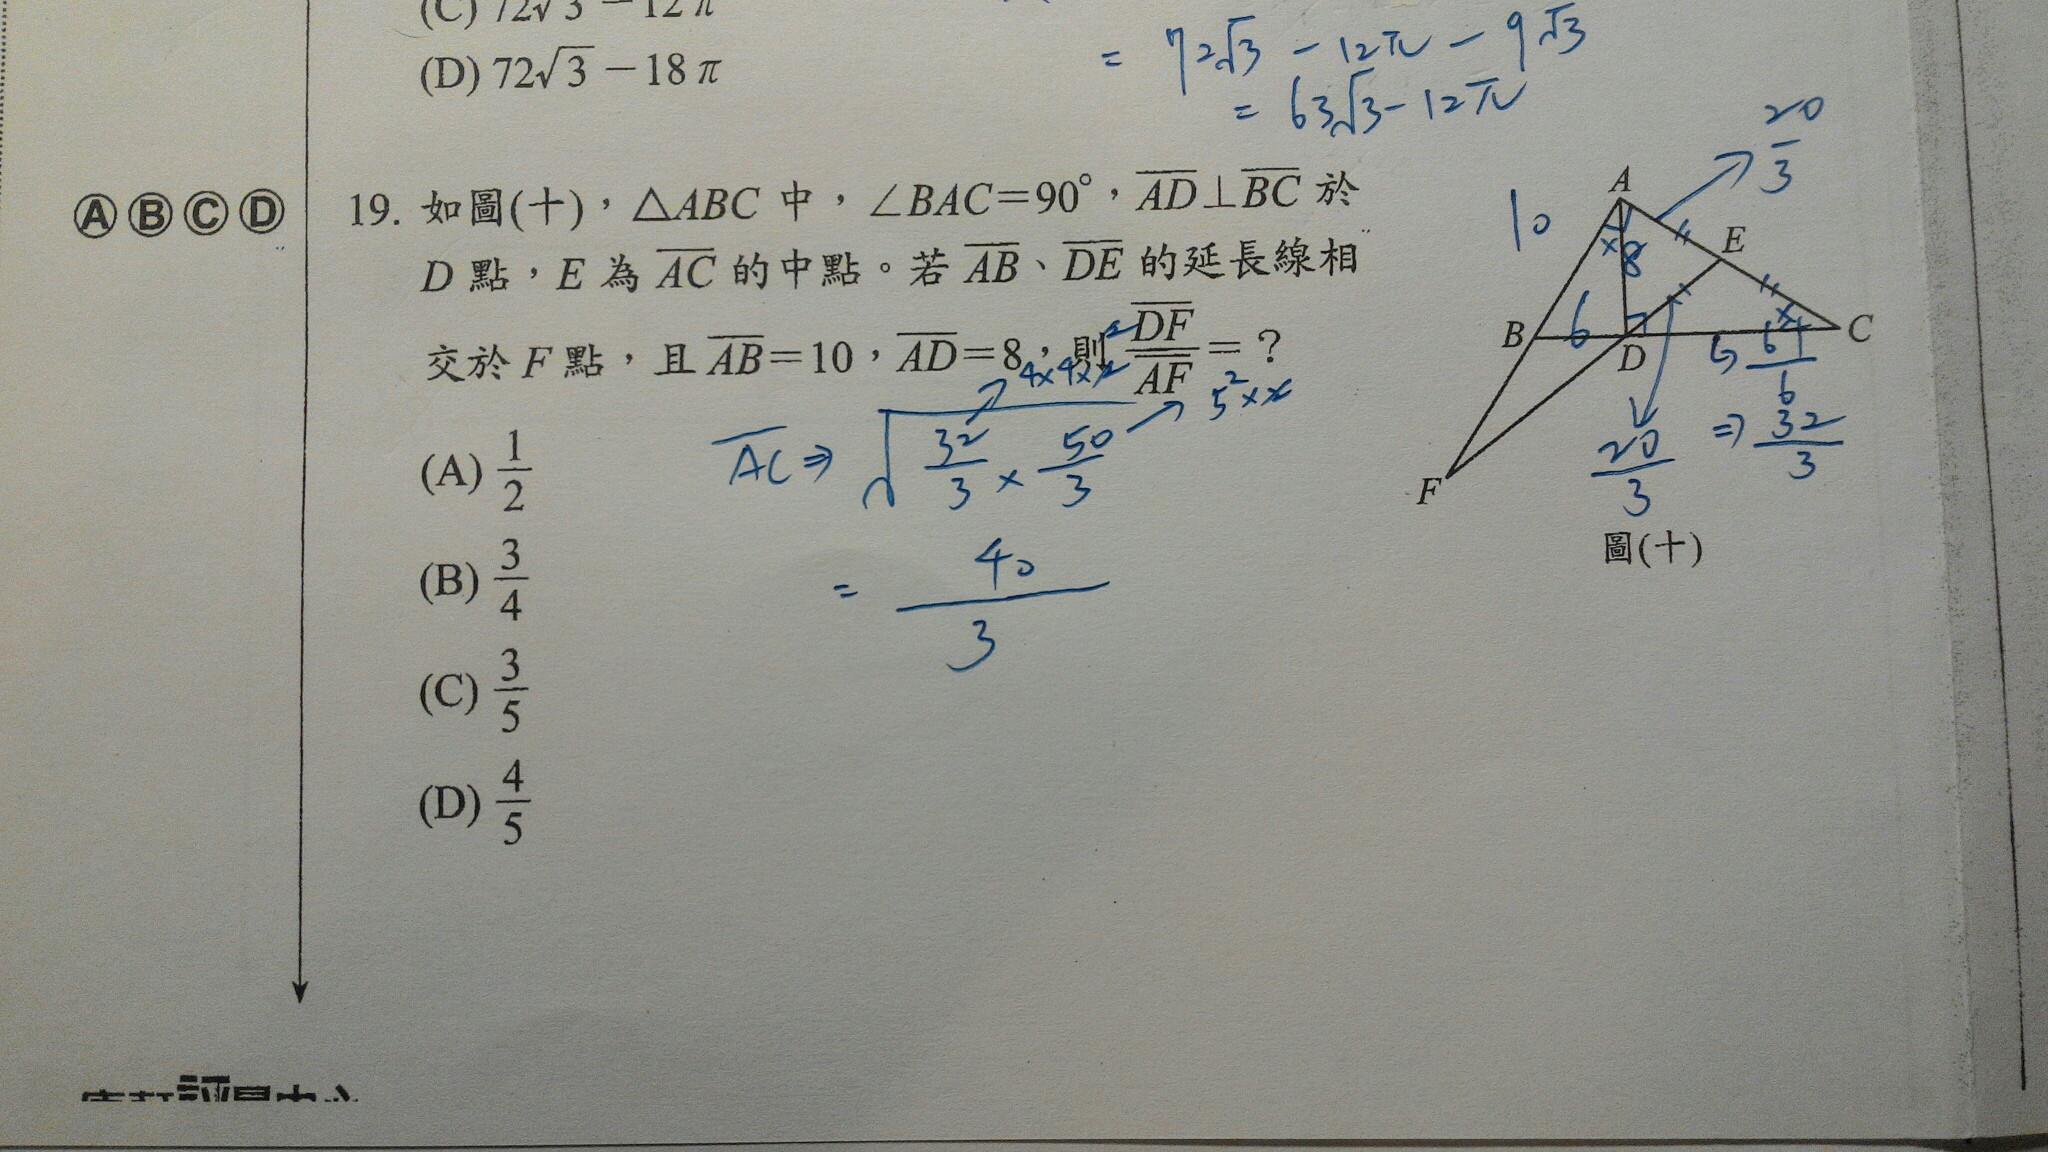 (C) 72√3 − 12π
(D) 72√3 − 18π
= 72√3 − 12π − 9√3
= 63√3 − 12π
Ⓐ Ⓑ Ⓒ Ⓓ
19. 如圖(十)，△ABC 中，∠BAC=90°，AD⊥BC 於
D 點，E 為 AC 的中點。若 AB、DE 的延長線相
交於 F 點，且 AB=10，AD=8，則 DF/AF = ？
(A) 1/2
(B) 3/4
(C) 3/5
(D) 4/5
AC ⇒ √(32/3 × 50/3)
4×4×2
5²×2
= 40/3
20/3
10
A
E
8
B
6
D
C
64/6
⇒ 32/3
20/3
F
圖(十)